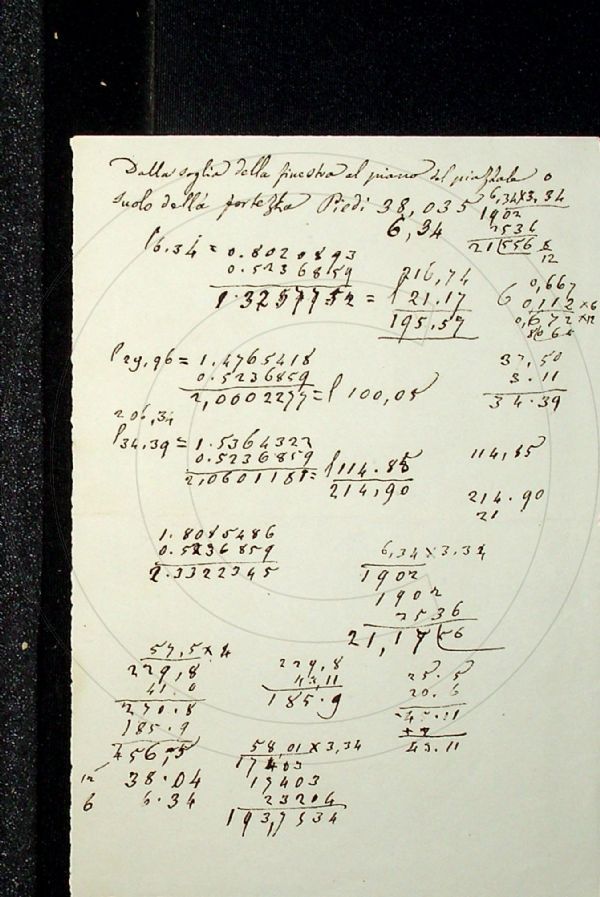 Dalla soglia della finestra al piano del piazzale o
suolo della fortezza Piedi 38,035
6,34
6,34 x 3,34
1902
2536
21|556
8
12
l 6.34 = 0.8020893
0.5236859
1.3257752 = l
216,74
21.17
195.57
0,667
6 0,112 x 6
0,672 x 12
l 29,96 = 1.4765418
0.5236859
2,0002277 = l 100,05
37,50
3.11
34.39
206,34
l 34,39 = 1.5364322
0.5236859
2,0601181 = l 114.85
214,90
114,85
214.90
21
1.8085486
0.5236859
2.3322345
6,34 x 3.34
1902
1902
2536
21,17|56
57,5 x 4
229,8
41.0
270.8
185.9
456,5
12 38.04
6 6.34
229,8
43,11
185.9
58,01 x 3,34
17403
17403
23204
193,7534
25.5
20.6
43.11